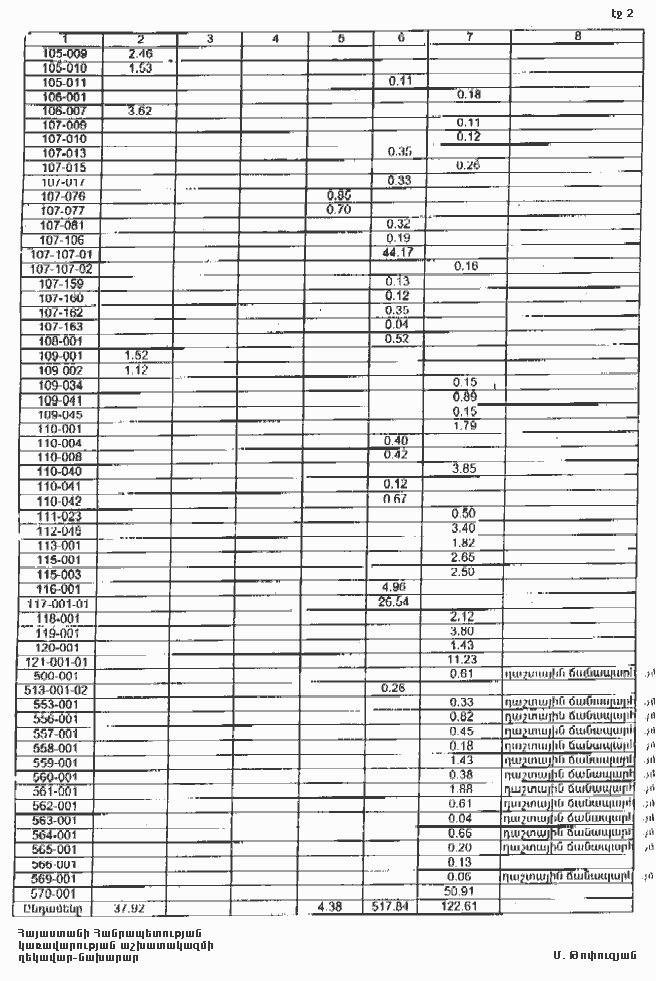 էջ 2
1 2 3 4 5 6 7 8
105-009 2.46
105-010 1.53
105-011 0.11
106-001 0.18
106-007 3.62
107-009 0.11
107-010 0.12
107-013 0.35
107-015 0.26
107-017 0.33
107-076 0.85
107-077 0.70
107-081 0.32
107-106 0.19
107-107-01 44.17
107-107-02 0.16
107-159 0.13
107-160 0.12
107-162 0.35
107-163 0.04
108-001 0.52
109-001 1.52
109 002 1.12
109-034 0.15
109-041 0.89
109-045 0.15
110-001 1.79
110-004 0.40
110-008 0.42
110-040 3.85
110-041 0.12
110-042 0.67
111-023 0.50
112-048 3.40
113-001 1.82
115-001 2.65
115-003 2.50
116-001 4.96
117-001-01 26.54
118-001 2.12
119-001 3.80
120-001 1.43
121-001-01 11.23
500-001 0.61 դաշտային ճանապարհ
513-001-02 0.26
553-001 0.33 դաշտային ճանապարհ
556-001 0.82 դաշտային ճանապարհ
557-001 0.45 դաշտային ճանապարհ
558-001 0.18 դաշտային ճանապարհ
559-001 1.43 դաշտային ճանապարհ
560-001 0.38 դաշտային ճանապարհ
561-001 1.88 դաշտային ճանապարհ
562-001 0.61 դաշտային ճանապարհ
563-001 0.04 դաշտային ճանապարհ
564-001 0.66 դաշտային ճանապարհ
565-001 0.20 դաշտային ճանապարհ
566-001 0.13
569-001 0.06 դաշտային ճանապարհ
570-001 50.91
Ընդամենը 37.92 4.38 517.84 122.61
Հայաստանի Հանրապետության
կառավարության աշխատակազմի
ղեկավար-նախարար Մ. Թոփուզյան